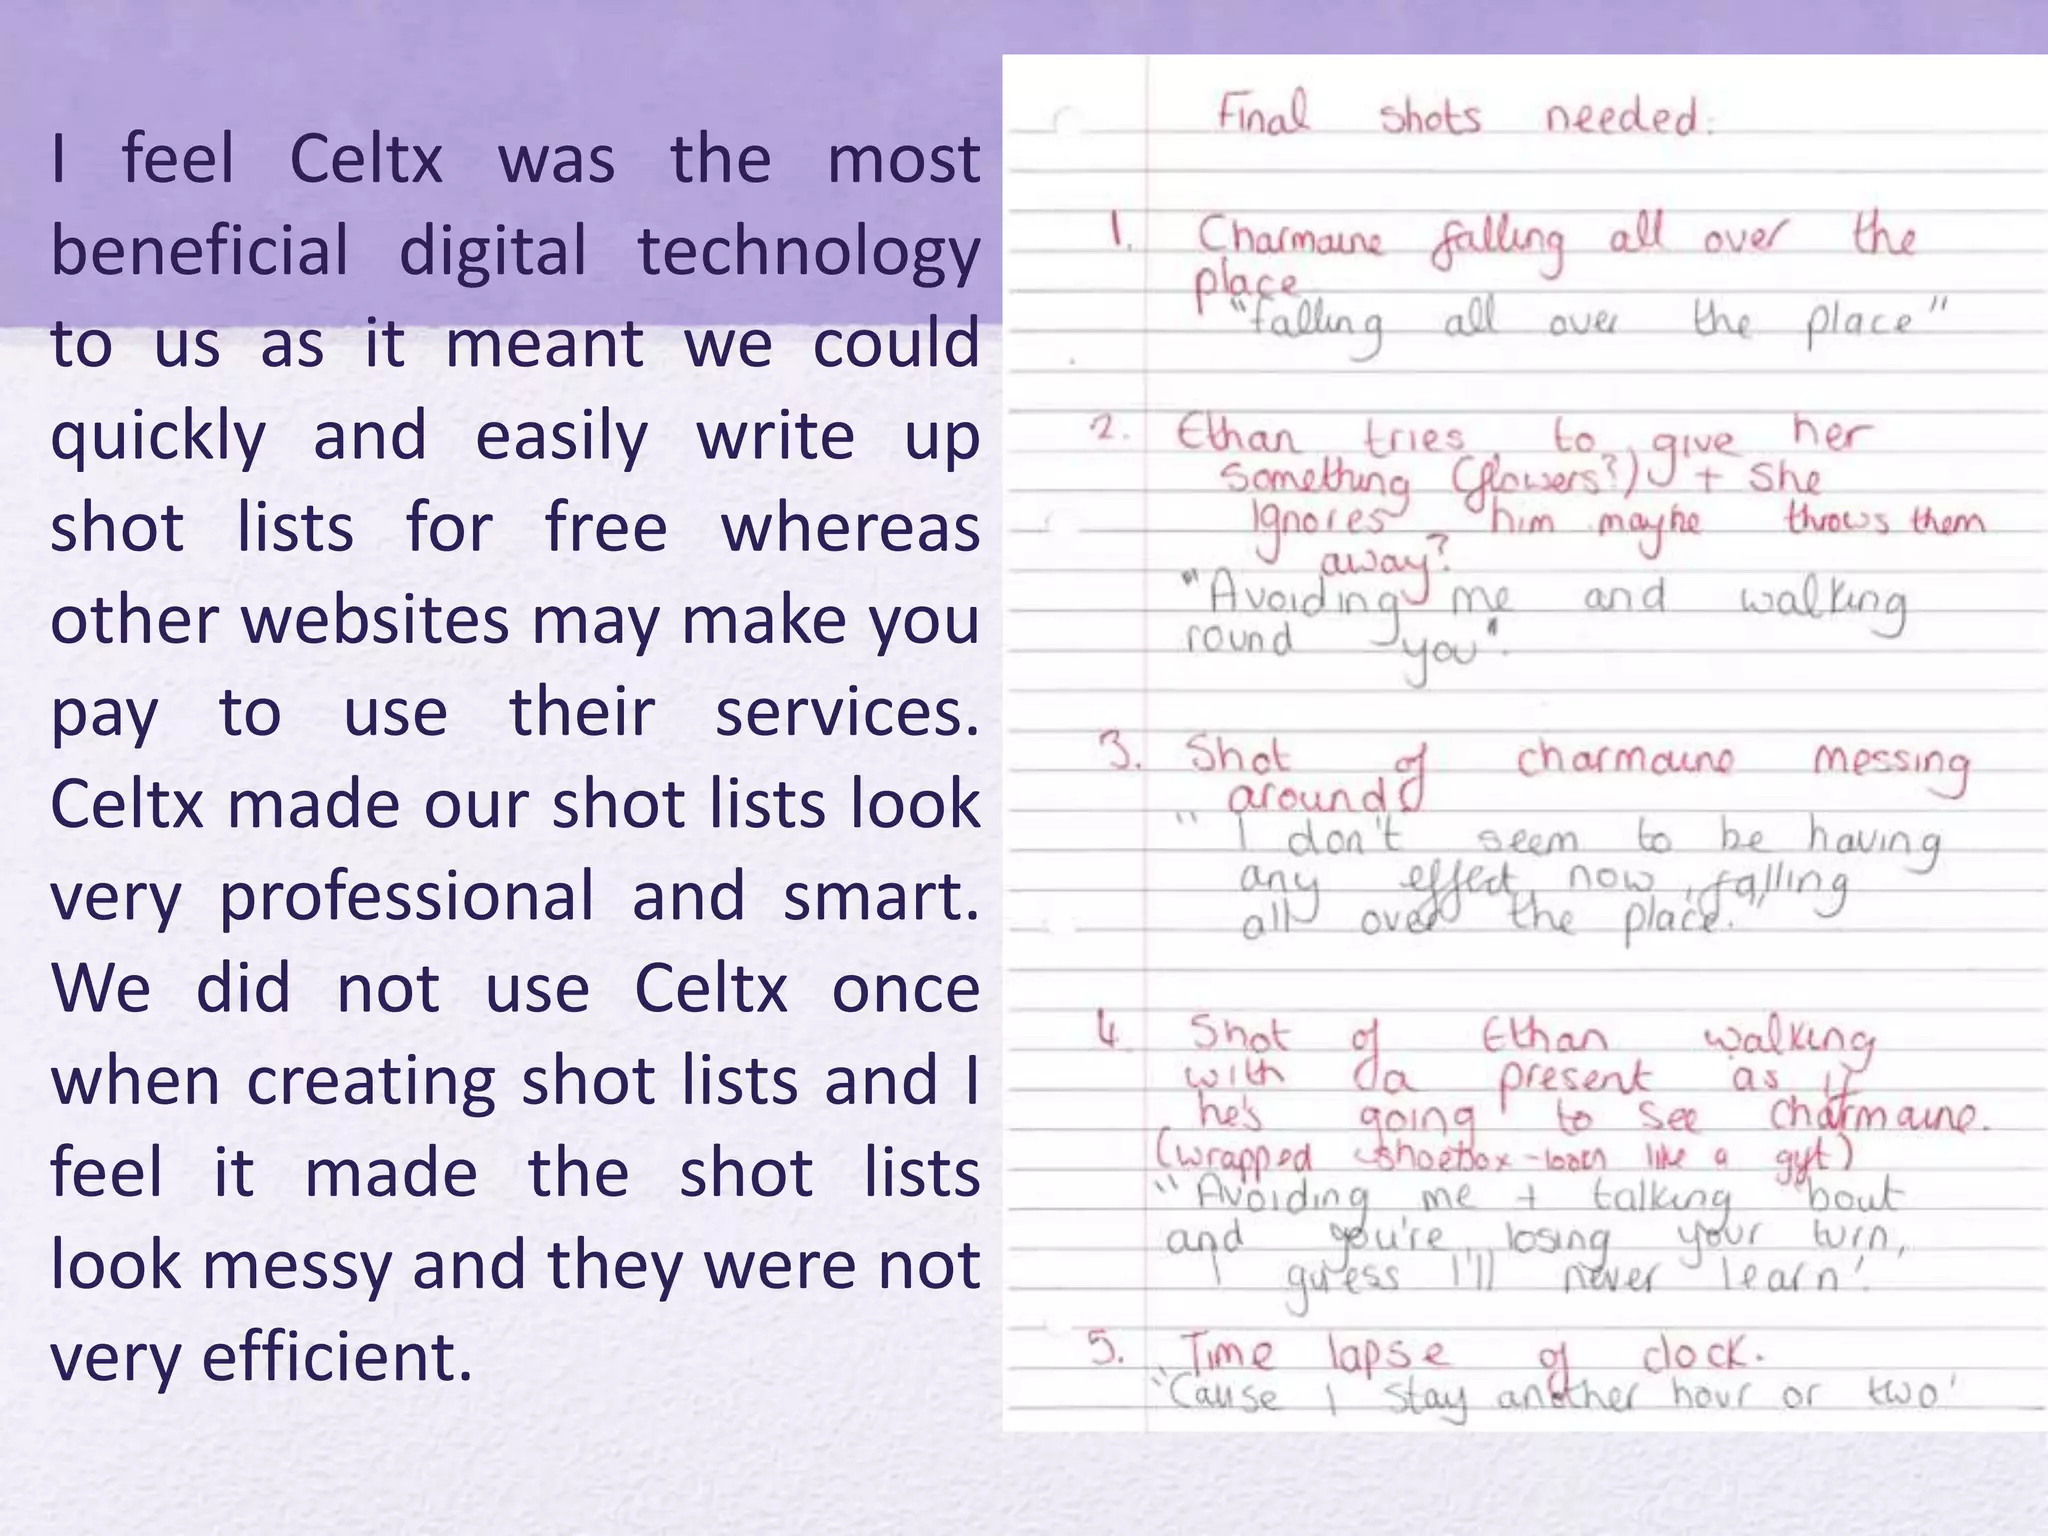 I feel Celtx was the most
beneficial digital technology
to us as it meant we could
quickly and easily write up
shot lists for free whereas
other websites may make you
pay to use their services.
Celtx made our shot lists look
very professional and smart.
We did not use Celtx once
when creating shot lists and I
feel it made the shot lists
look messy and they were not
very efficient.
Final shots needed:
1. Charmaine falling all over the
place
"falling all over the place"
2. Ethan tries to give her
something (flowers?) + she
ignores him maybe throws them
away?
"Avoiding me and walking
round you".
3. Shot of charmaine messing
around
"I don't seem to be having
any effect now, falling
all over the place."
4. Shot of Ethan walking
with a present as if
he's going to see charmaine.
(wrapped shoebox - look like a gift)
"Avoiding me + talking 'bout
and you're losing your turn,
I guess I'll never learn'.
5. Time lapse of clock.
"Cause I stay another hour or two'